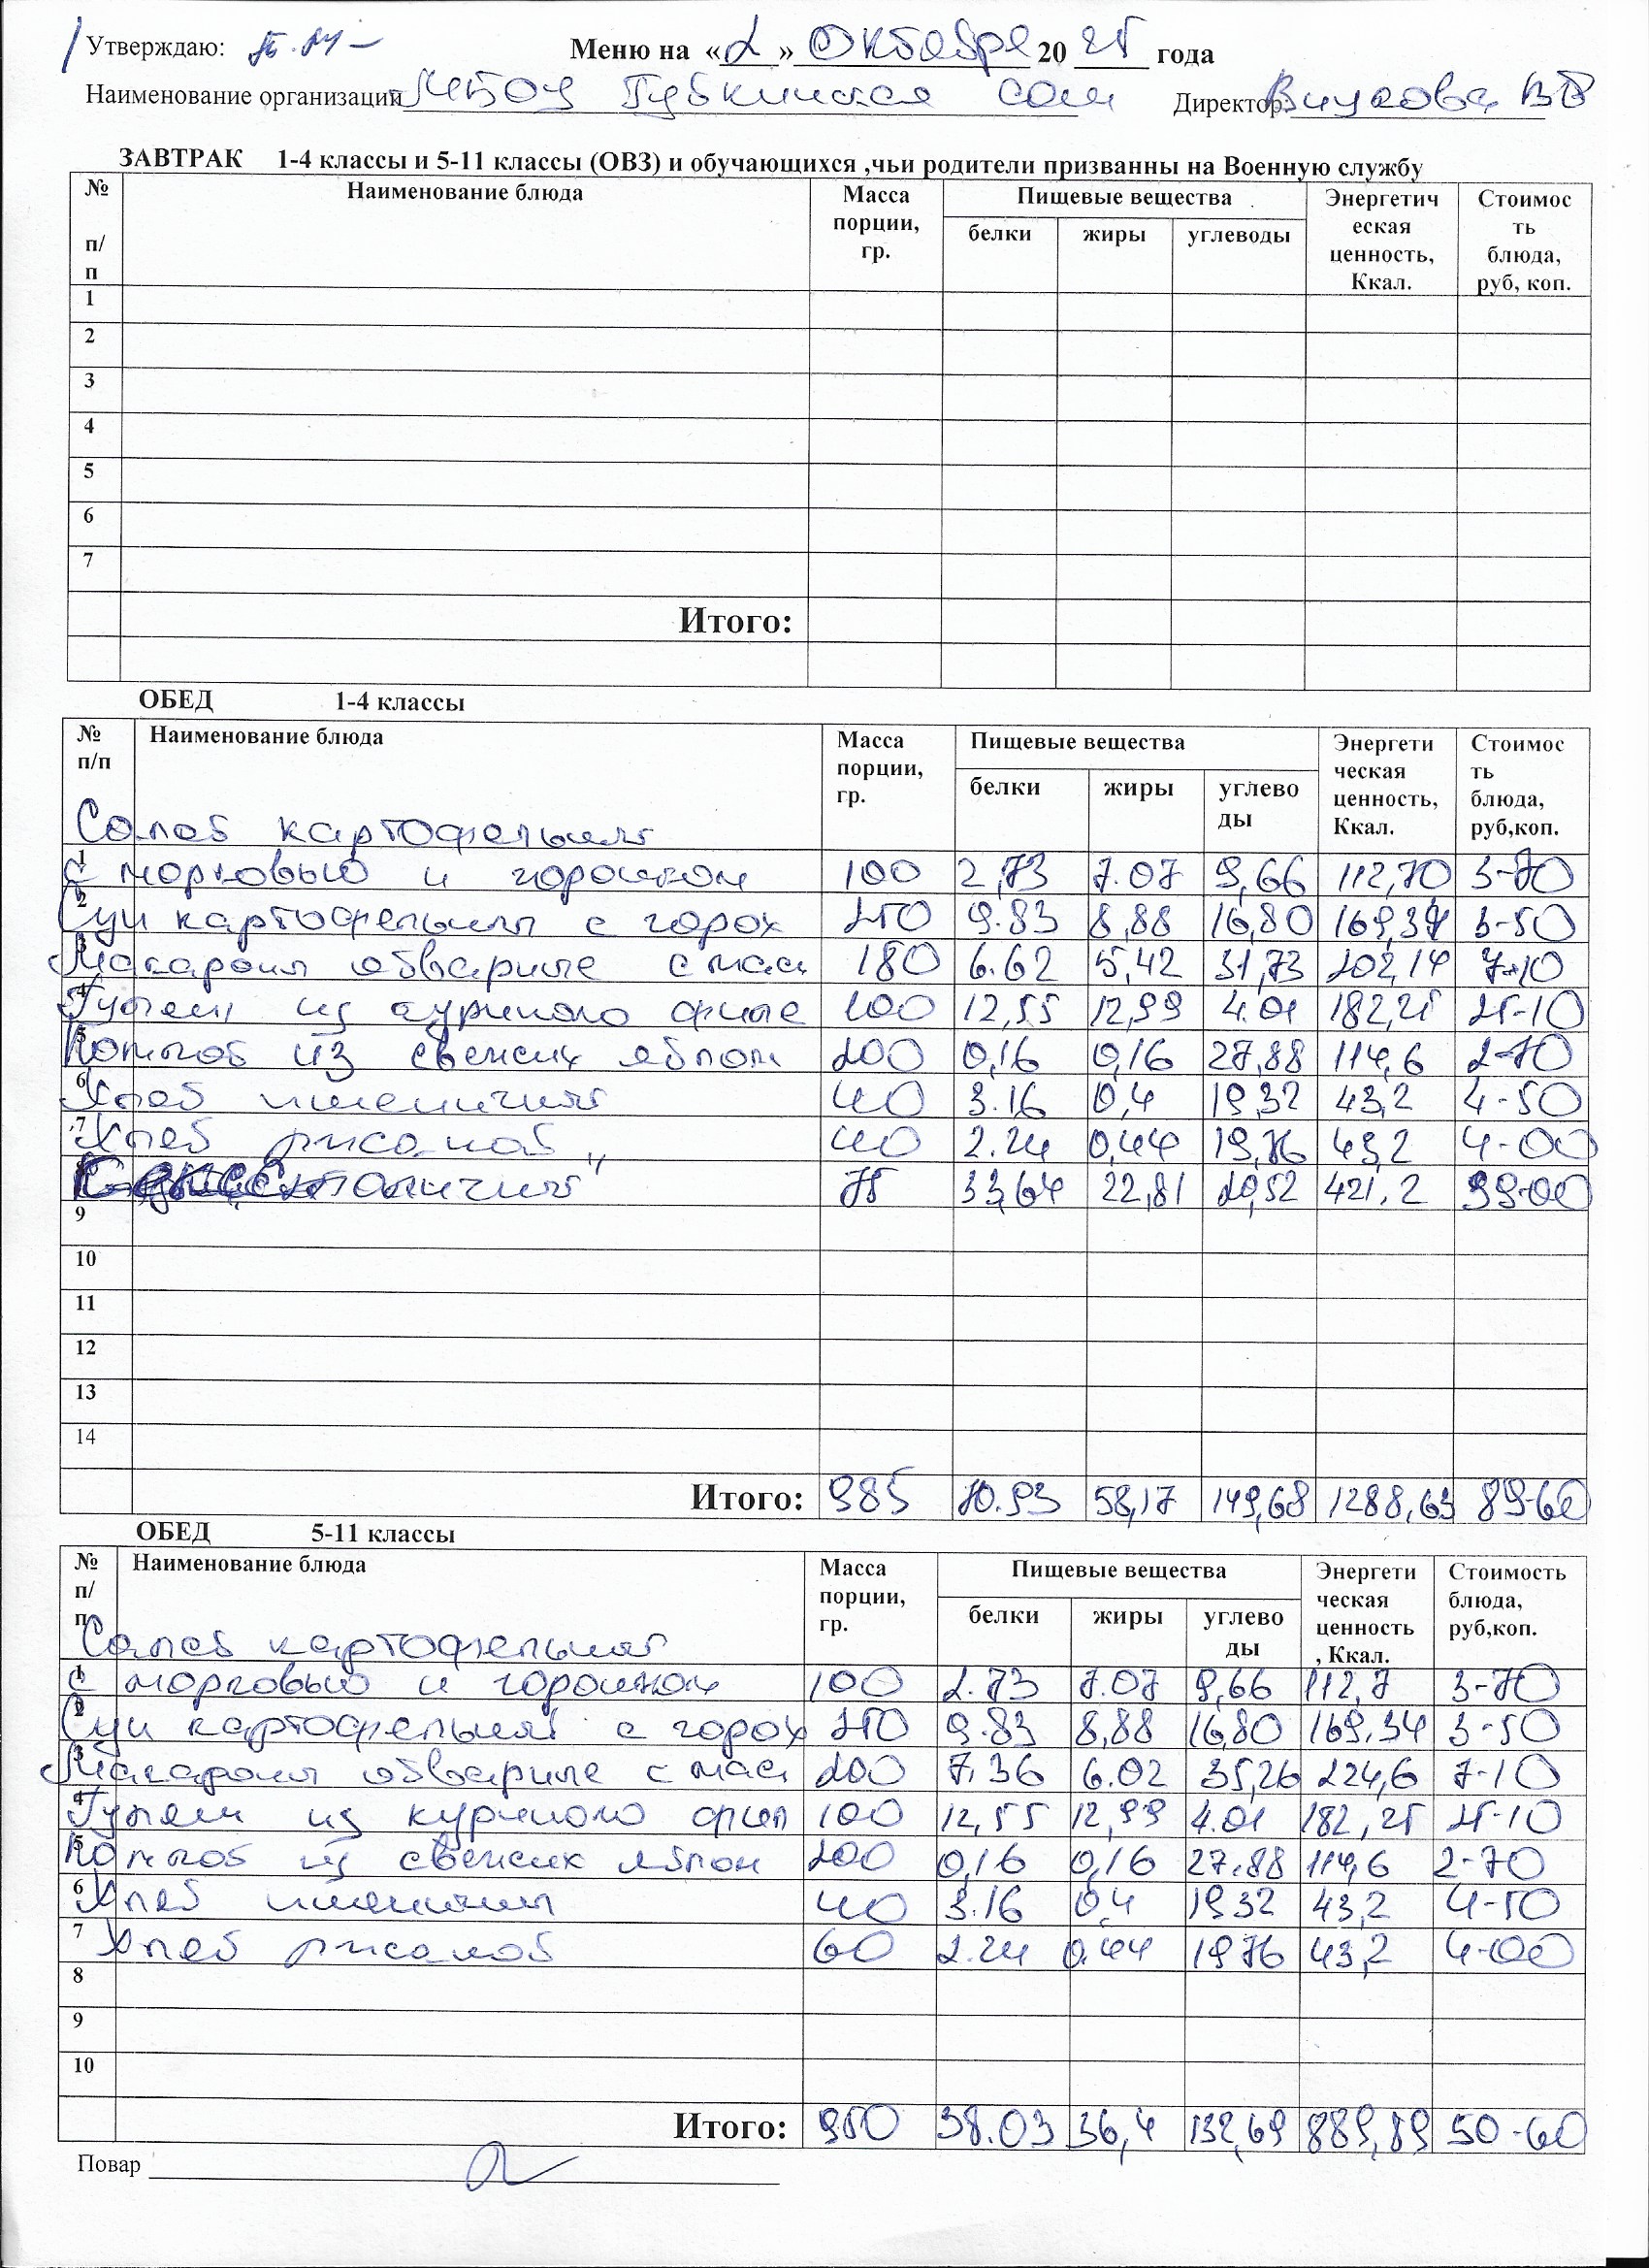 Утверждаю: Меню на «2» Октября 2025 года
Наименование организации МБОУ Губкинская сош Директор: ВФ
ЗАВТРАК 1-4 классы и 5-11 классы (ОВЗ) и обучающихся ,чьи родители призванны на Военную службу
№ п/п Наименование блюда Масса порции, гр. Пищевые вещества Энергетическая ценность, Ккал. Стоимость блюда, руб, коп.
белки жиры углеводы
1
2
3
4
5
6
7
Итого:
ОБЕД 1-4 классы
№ п/п Наименование блюда Масса порции, гр. Пищевые вещества Энергетическая ценность, Ккал. Стоимость блюда, руб,коп.
белки жиры углеводы
Салат картофельный
1 с морковью и горошком 100 2,73 7.07 9,66 112,70 3-70
2 Суп картофельный с горох 250 9.83 8,88 16,80 169,34 3-50
3 Макароны отварные с мас 180 6.62 5,42 31,73 202,14 7-10
4 Гуляш из куриного филе 100 12,55 12,99 4.01 182,25 25-10
5 Компот из свежих яблок 200 0,16 0,16 27,88 114,6 2-70
6 Хлеб пшеничный 40 3.16 0,4 19,32 43,2 4-50
7 Хлеб ржаной 40 2.24 0,44 19,76 43,2 4-00
75 33,64 22,81 20,52 421,2 39-00
9
10
11
12
13
14
Итого: 985 70.93 58,17 149,68 1288,63 89-60
ОБЕД 5-11 классы
№ п/п Наименование блюда Масса порции, гр. Пищевые вещества Энергетическая ценность, Ккал. Стоимость блюда, руб,коп.
белки жиры углеводы
Салат картофельный
1 с морковью и горошком 100 2.73 7.07 9,66 112,7 3-70
2 Суп картофельный с горох 250 9.83 8,88 16,80 169,34 3-50
3 Макароны отварные с мас 200 7.36 6.02 35,26 224,6 7-10
4 Гуляш из куриного фил 100 12,55 12,99 4.01 182,25 25-10
5 Компот из свежих яблок 200 0,16 0,16 27.88 114,6 2-70
6 Хлеб пшеничный 40 3.16 0,4 1932 43,2 4-50
7 Хлеб ржаной 60 2.24 0.44 1976 43,2 4-00
8
9
10
Итого: 950 38.03 36,4 132,69 889,89 50-60
Повар